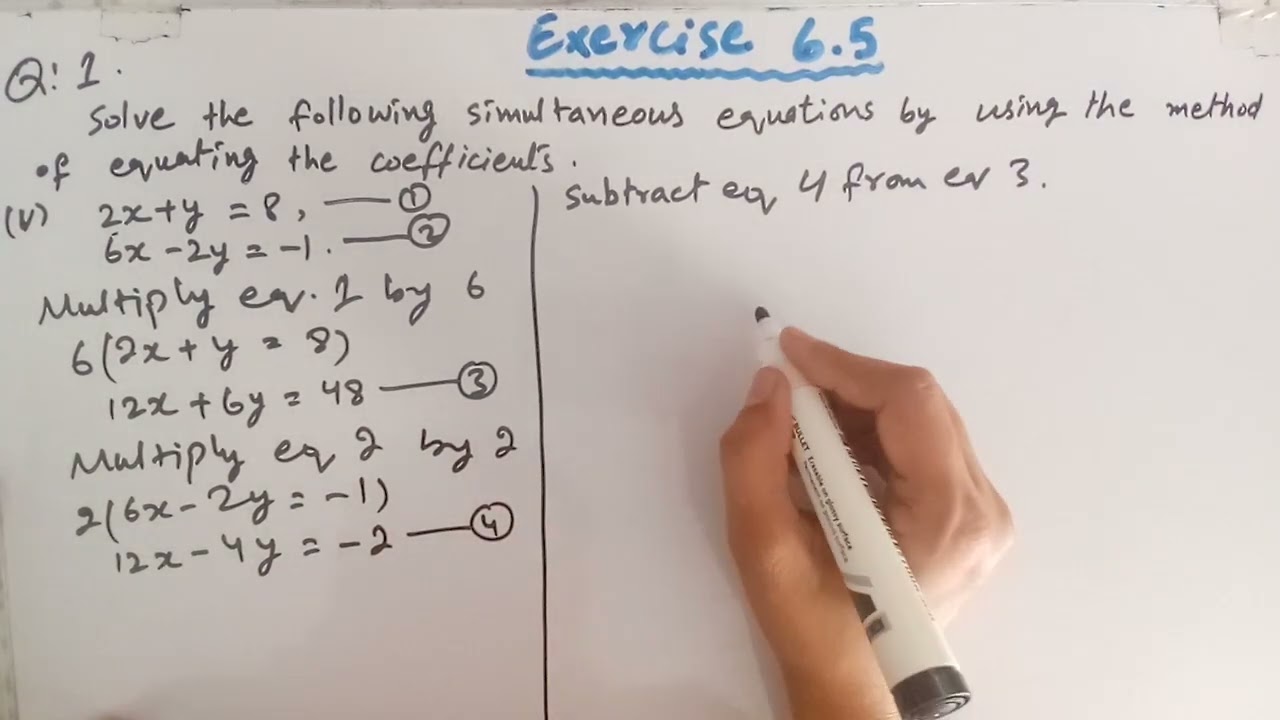 Exercise 6.5
Q: 1.
Solve the following simultaneous equations by using the method
of equating the coefficients.
(V) 2x+y = 8, ①
6x -2y = -1. ②
Multiply eq. 1 by 6
6(2x + y = 8)
12x + 6y = 48 ③
Multiply eq 2 by 2
2(6x - 2y = -1)
12x - 4y = -2 ④
Subtract eq 4 from eq 3.
BULLET Erasable on glossy surface